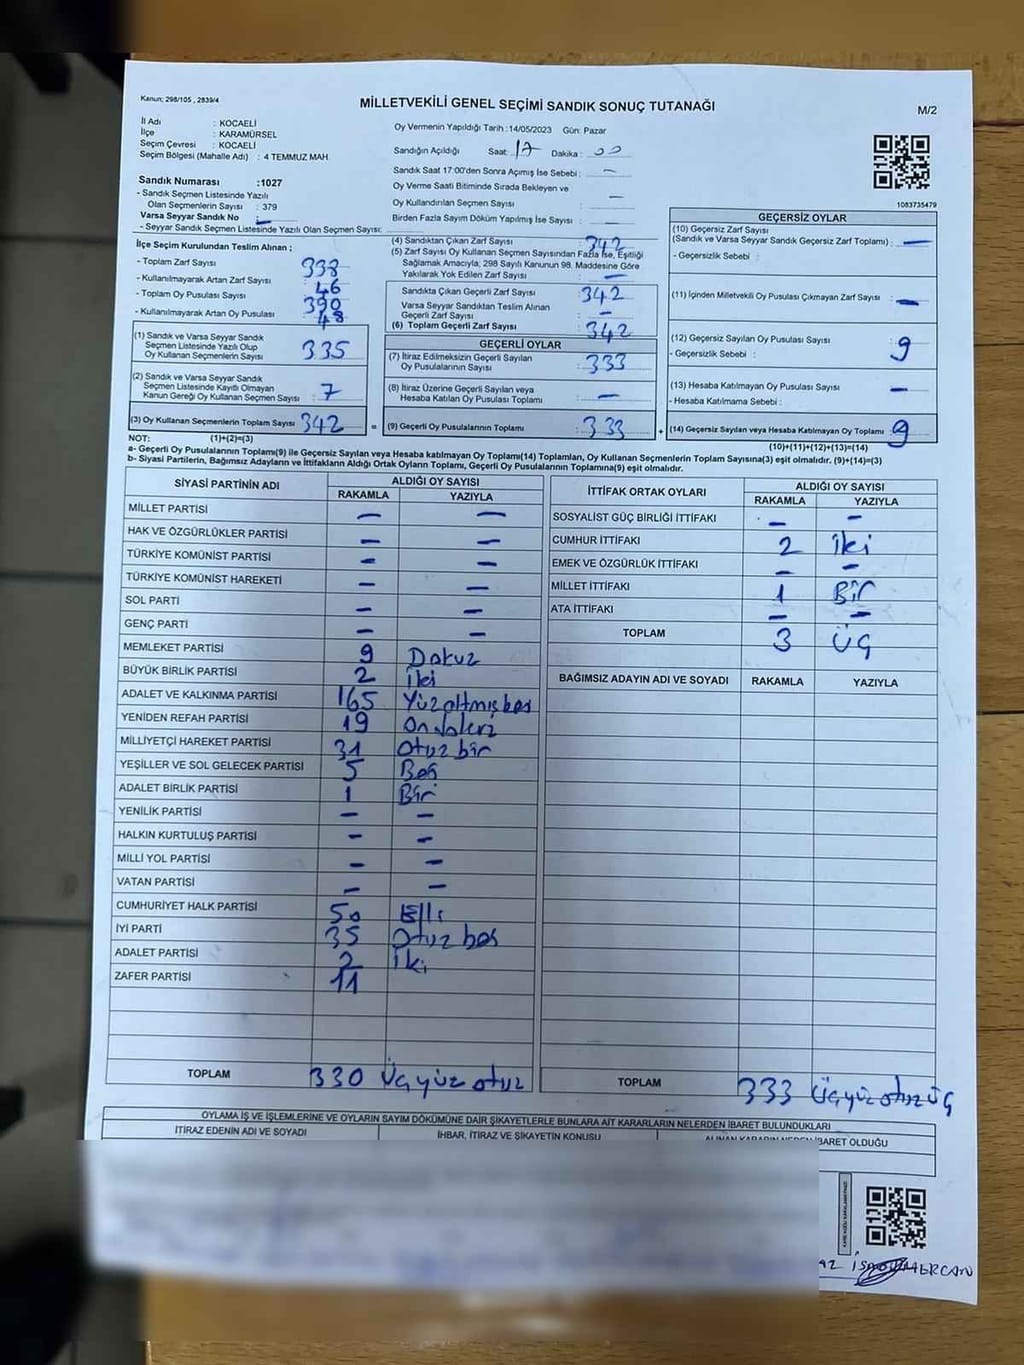 Kanun: 298/105 , 2839/4
MİLLETVEKİLİ GENEL SEÇİMİ SANDIK SONUÇ TUTANAĞI
M/2
İl Adı : KOCAELİ
İlçe : KARAMÜRSEL
Seçim Çevresi : KOCAELİ
Seçim Bölgesi (Mahalle Adı) : 4 TEMMUZ MAH.
Oy Vermenin Yapıldığı Tarih :14/05/2023 Gün: Pazar
Sandığın Açıldığı Saat: 17 Dakika : 00
Sandık Saat 17:00'den Sonra Açılmış İse Sebebi : —
Oy Verme Saati Bitiminde Sırada Bekleyen ve
Oy Kullandırılan Seçmen Sayısı : —
Birden Fazla Sayım Döküm Yapılmış İse Sayısı : —
1083735479
Sandık Numarası :1027
- Sandık Seçmen Listesinde Yazılı
Olan Seçmenlerin Sayısı : 379
Varsa Seyyar Sandık No : —
- Seyyar Sandık Seçmen Listesinde Yazılı Olan Seçmen Sayısı:
İlçe Seçim Kurulundan Teslim Alınan ;
- Toplam Zarf Sayısı 338
- Kullanılmayarak Artan Zarf Sayısı : 46
- Toplam Oy Pusulası Sayısı : 390
- Kullanılmayarak Artan Oy Pusulası : 48
(1) Sandık ve Varsa Seyyar Sandık
Seçmen Listesinde Yazılı Olup
Oy Kullanan Seçmenlerin Sayısı : 335
(2) Sandık ve Varsa Seyyar Sandık
Seçmen Listesinde Kayıtlı Olmayan
Kanun Gereği Oy Kullanan Seçmen Sayısı : 7
(3) Oy Kullanan Seçmenlerin Toplam Sayısı : 342 =
(4) Sandıktan Çıkan Zarf Sayısı : 342
(5) Zarf Sayısı Oy Kullanan Seçmen Sayısından Fazla İse, Eşitliği
Sağlamak Amacıyla, 298 Sayılı Kanunun 98. Maddesine Göre
Yakılarak Yok Edilen Zarf Sayısı : —
Sandıkta Çıkan Geçerli Zarf Sayısı : 342
Varsa Seyyar Sandıktan Teslim Alınan
Geçerli Zarf Sayısı : —
(6) Toplam Geçerli Zarf Sayısı : 342
GEÇERLİ OYLAR
(7) İtiraz Edilmeksizin Geçerli Sayılan
Oy Pusulalarının Sayısı : 333
(8) İtiraz Üzerine Geçerli Sayılan veya
Hesaba Katılan Oy Pusulası Toplamı : —
(9) Geçerli Oy Pusulalarının Toplamı : 333 +
GEÇERSİZ OYLAR
(10) Geçersiz Zarf Sayısı
(Sandık ve Varsa Seyyar Sandık Geçersiz Zarf Toplamı) : —
- Geçersizlik Sebebi :
(11) İçinden Milletvekili Oy Pusulası Çıkmayan Zarf Sayısı : —
(12) Geçersiz Sayılan Oy Pusulası Sayısı : 9
- Geçersizlik Sebebi :
(13) Hesaba Katılmayan Oy Pusulası Sayısı : —
- Hesaba Katılmama Sebebi :
(14) Geçersiz Sayılan veya Hesaba Katılmayan Oy Toplamı : 9
NOT: (1)+(2)=(3) (10)+(11)+(12)+(13)=(14)
a- Geçerli Oy Pusulalarının Toplamı(9) ile Geçersiz Sayılan veya Hesaba Katılmayan Oy Toplamı(14) Toplamları, Oy Kullanan Seçmenlerin Toplam Sayısına(3) eşit olmalıdır. (9)+(14)=(3)
b- Siyasi Partilerin, Bağımsız Adayların ve İttifakların Aldığı Ortak Oyların Toplamı, Geçerli Oy Pusulalarının Toplamına(9) eşit olmalıdır.
SİYASİ PARTİNİN ADI ALDIĞI OY SAYISI
RAKAMLA YAZIYLA
MİLLET PARTİSİ — —
HAK VE ÖZGÜRLÜKLER PARTİSİ — —
TÜRKİYE KOMÜNİST PARTİSİ — —
TÜRKİYE KOMÜNİST HAREKETİ — —
SOL PARTİ — —
GENÇ PARTİ — —
MEMLEKET PARTİSİ 9 Dokuz
BÜYÜK BİRLİK PARTİSİ 2 iki
ADALET VE KALKINMA PARTİSİ 165 Yüzaltmışbeş
YENİDEN REFAH PARTİSİ 19
MİLLİYETÇİ HAREKET PARTİSİ 31 otuz bir
YEŞİLLER VE SOL GELECEK PARTİSİ 5 Beş
ADALET BİRLİK PARTİSİ 1 Bir
YENİLİK PARTİSİ — —
HALKIN KURTULUŞ PARTİSİ — —
MİLLİ YOL PARTİSİ — —
VATAN PARTİSİ — —
CUMHURİYET HALK PARTİSİ 50 Elli
İYİ PARTİ 35 Otuz beş
ADALET PARTİSİ 2 iki
ZAFER PARTİSİ 11
TOPLAM 330 Üçyüz otuz
İTTİFAK ORTAK OYLARI ALDIĞI OY SAYISI
RAKAMLA YAZIYLA
SOSYALİST GÜÇ BİRLİĞİ İTTİFAKI — —
CUMHUR İTTİFAKI 2 iki
EMEK VE ÖZGÜRLÜK İTTİFAKI — —
MİLLET İTTİFAKI 1 Bir
ATA İTTİFAKI — —
TOPLAM 3 ÜÇ
BAĞIMSIZ ADAYIN ADI VE SOYADI RAKAMLA YAZIYLA
TOPLAM 333 Üçyüz otuz üç
OYLAMA İŞ VE İŞLEMLERİNE VE OYLARIN SAYIM DÖKÜMÜNE DAİR ŞİKAYETLERLE BUNLARA AİT KARARLARIN NELERDEN İBARET BULUNDUKLARI
İTİRAZ EDENİN ADI VE SOYADI İHBAR, İTİRAZ VE ŞİKAYETİN KONUSU ALINAN KARARIN NEDEN İBARET OLDUĞU